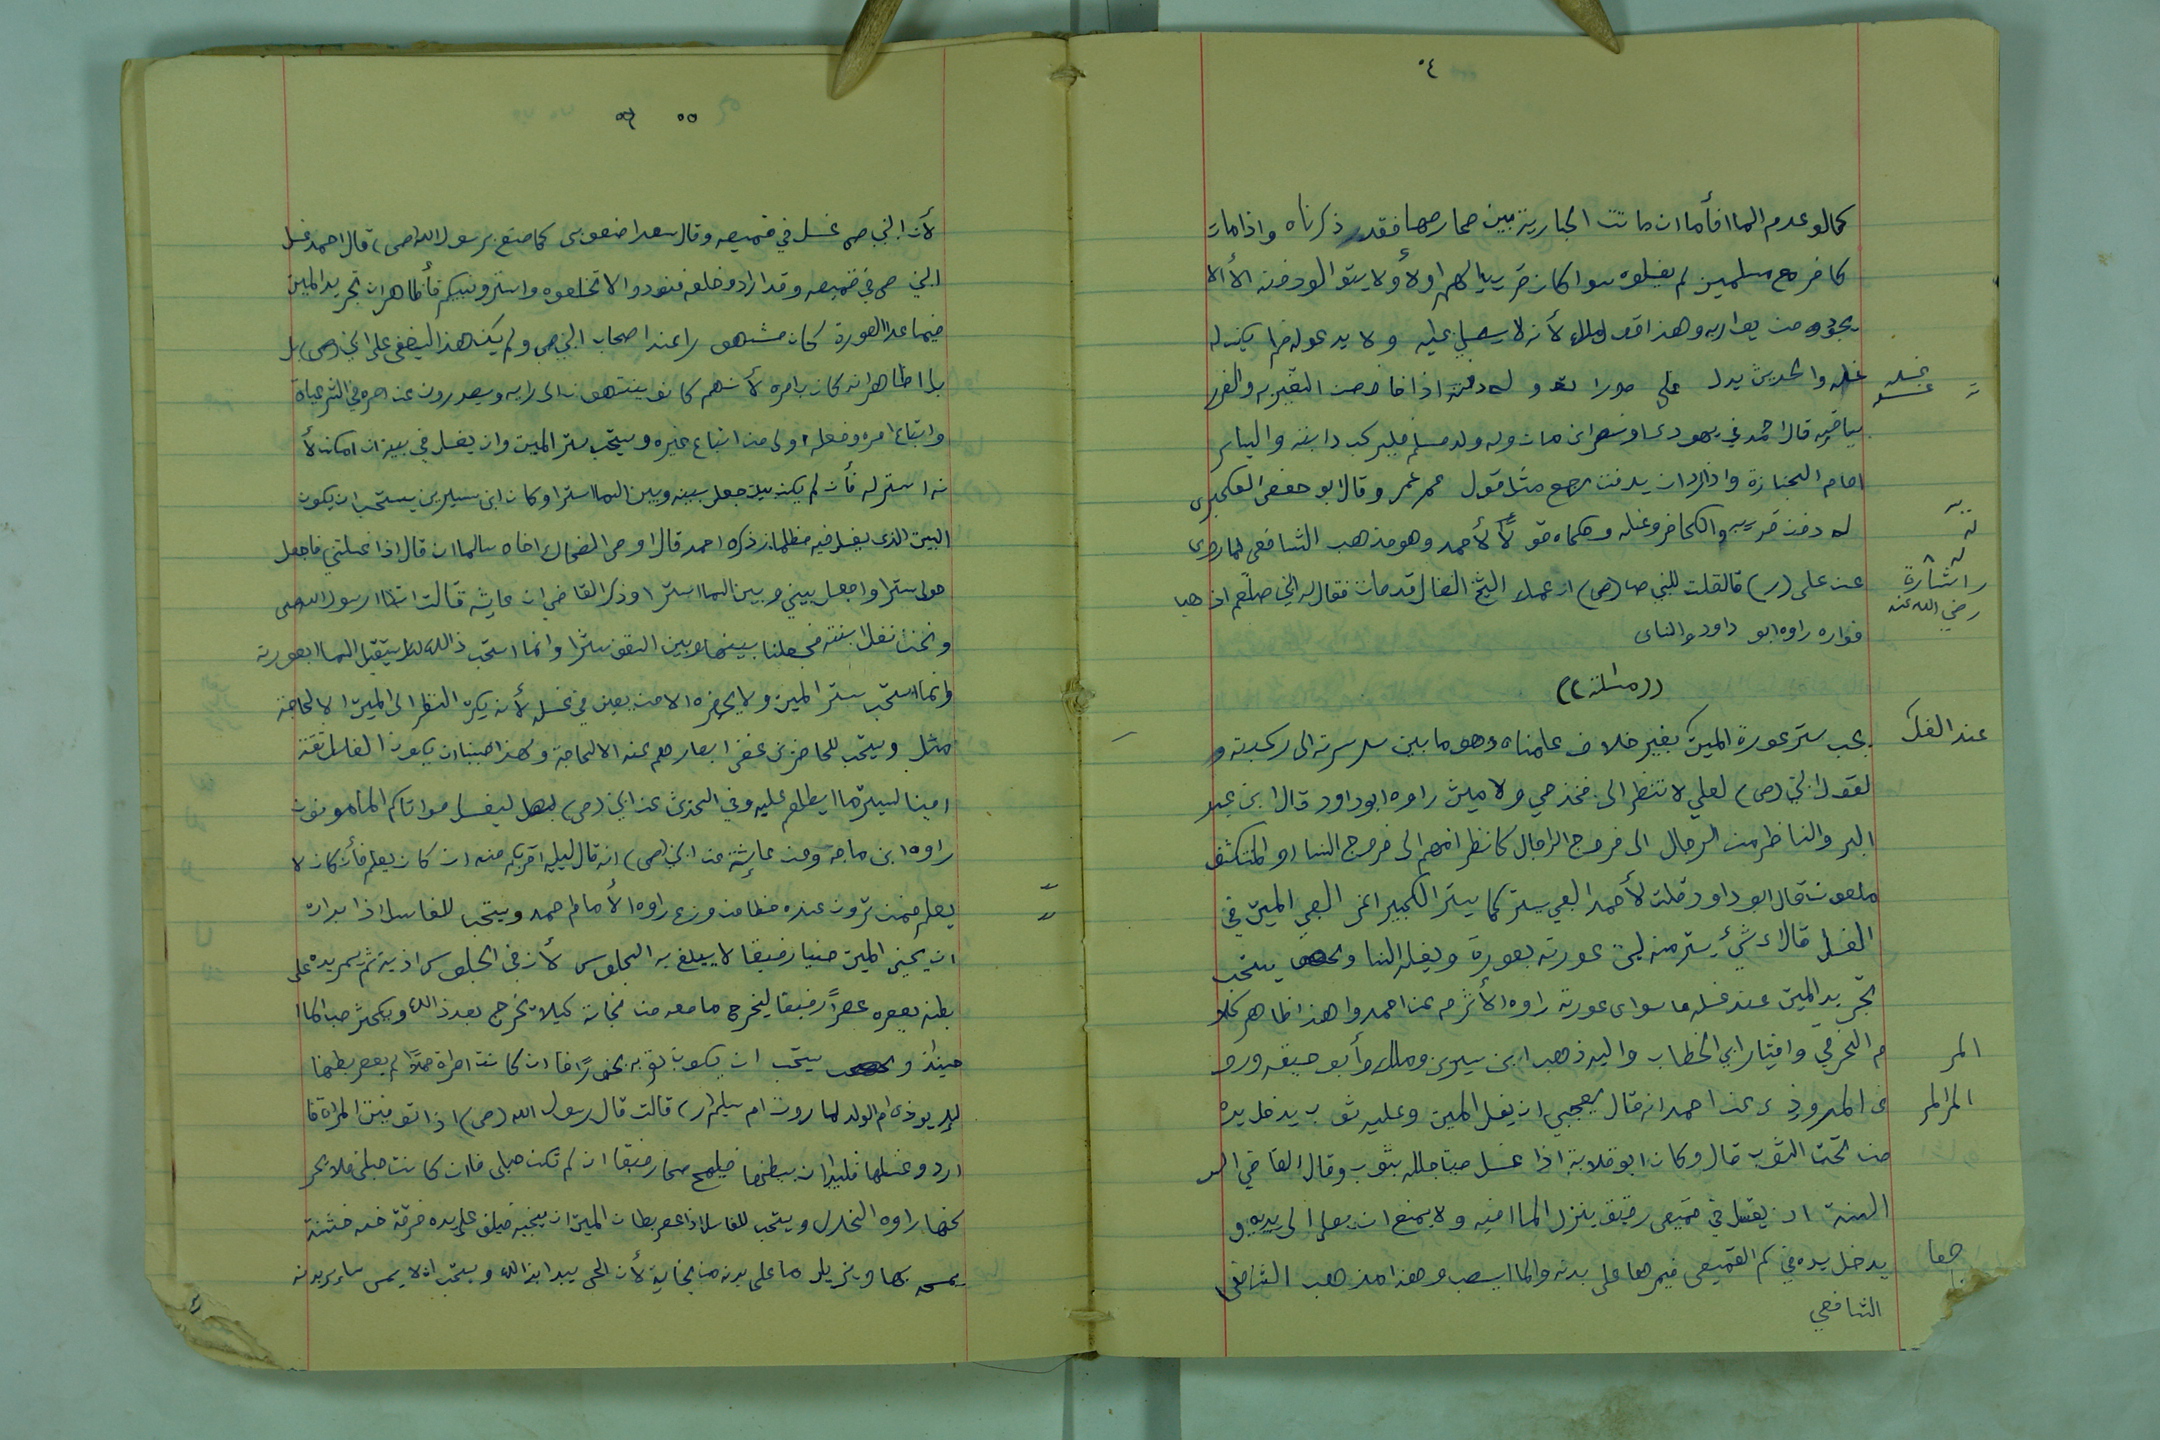 ٥٤
كما لو عدم الما فأما ان ماتت الجارية بين محارمها فقد ذكرناه واذا مات
كافر مع مسلمين لم يغسلوه سوا كان قريبا لهم او لأ ولا يتوالو دفنه الأ الا
يجدو من يواريه وهذا قول مالك لأنه لا يصلي عليه ولا يدعو له فلم يكن له
غسله والحديث يدل على موراته وله دفنه اذا خاف من التغير به والضرر
غسله
ببقائه قال احمد في يهودى او نصرانى مات وله ولد مسلم فليركب دابته وليسر
امام الجنازة واذا اراد ان يدفنه رجع مثل قول عمر وقال ابو حفص العكبرى
له دفن قريبه الكافر وغسله وحكاه قولاً لأحمد وهو مذهب الشافعى لما روى
عن على (ر) قال قلت للنبي (ص) ان عمك الشيخ الضال قد مات فقال له النبي صلعم اذهب
رضي الله عنه
فواره راوه ابو داود والنساى
((مسئلة))
يجب ستر عورة الميت بغير خلاف علمناه وهو ما بين سرته الى ركبته و
عند الفك
لقول النبي (ص) لعلي لا تنظر الى فخذ حي ولا ميت راوه ابو داود قال ابن عبد
البر والناظر من الرجال الى فروج الرجال كالناظر منهم الى فروج النسا و المتكشف
ملعون قال ابو داود قلت لأحمد الصبي يستر كما يستر الكبير اعنى الصبي الميت في
الغسل قال اى شئ يستر منه ليت عورته بعورة ويغسله النسا و يستحب
تجريد الميت عند غسله ما سوى عورته راوه الأثرم عن احمد وهذا ظاهر كلا
م الخرقي واختيار ابي الخطاب واليه ذهب ابن سيرين ومالك وأبو حنيفه ورو
المر
ى المروذى عن احمد انه قال يعجبني ان يغسل الميت وعليه ثوب يدخل يده
المر المر
من تحت الثوب قال وكان ابو قلابة اذا غسل ميتا جلله بثوب وقال القاضي
السنة ان يغسل في قميص رقيق ينزل الما فيه ولا يمنع ان يصل الى بدنه و
يدخل يده في كم القميص فيمرها على بدنه والما يصب وهذا مذهب الشافعى
الشافعي
٥٥
لأن النبي ص غسل في قميصه وقال سعد اصنعو بى كما صنع برسول الله (ص) قال احمد غسل
النبي ص في قميصه وقد ارادو خلعه فنودو الا تخلعوه واسترو نبيكم فأظاهر ان تجريد الميت
فيما عدا العورة كان مشهورا عند اصحاب النبي ص ولم يكن هذا ليخفى على النبي (ص) بل
بل الظاهر انه كان بامره لأنهم كانو ينتهون الى رايه ويصدرون عن امره في الشرعياة
واتباع امره وفعله اولى من اتباع غيره ويستحب ستر الميت وان يغسل في بيت ان امكن لأ
نه استر له فأن لم يكن بيت جعل بينه وبين السما سترا وكان ابن سيرين يستحب ان يكون
البيت الذى يغسل فيه مظلما ذكره احمد قال اوصى الضحاك اخاه سالما ان قال اذا غسلتني فاجعل
حولى سترا واجعل بيني وبين السما سترا وذكر القاضي ان عايشه قالت اتانا رسول الله ص
ونحن نغسل ابنته فجعلنا بينها وبين السقف سترا وانما استحب ذالك لئلا يستقبل السما بعورته
وانما استحب ستر الميت ولا يحضره الا من يعين في غسله لأنه يكره النظر الى الميت الا لحاجة
مثل ويستحب للحاضرين غض ابصارهم عنه الا لحاجة وكذا احببنا ان يكون الغاسل ثقة
امينا ليستر ما يطلع عليه وفي الحديث عن النبي (ص) ليغسل موتاكم المأمونون
راوه ابن ماجه وعن عايشة عن النبي (ص) انه قال ليليه اقربكم منه ان كان يعلم فأن كان لا
يعلم فمن ترون عنده حظا من ورع راوه الأمام احمد ويستحب للغاسل اذا بدا به
ان يحني الميت حنيا رفيقا لا يبلغ به الجلوس لأن في الجلوس اذية ثم يمر يده على
بطنه يعصره عصراً رفيقا ليخرج ما معه من نجاسة كيلا تخرج بعد ذالك ويكثر صب الما
حينئذ و يستحب ان يكون بقربه بخورًا فان كانت امراة حملًا لم يعصر بطنها
لئلا يوذى ام الولد لما روت ام سليم (ر) قالت قال رسول الله (ص) اذا توفيت المراة فا
ارادو غسلها فليبدا ببطنها فليمسح مسحا رفيقا ان لم تكن حبلى فان كانت حبلى فلا يحر
كنها راوه الخلال ويستحب للغاسل اذا عصر بطن الميت ان ينجيه فيلف على يده خرقة خشنة
يمسحه بها ويزيل ما على بدنه من نجاسة لأن الحي يبدا بذالك ويستحب ان لا يمس ساير بدنه